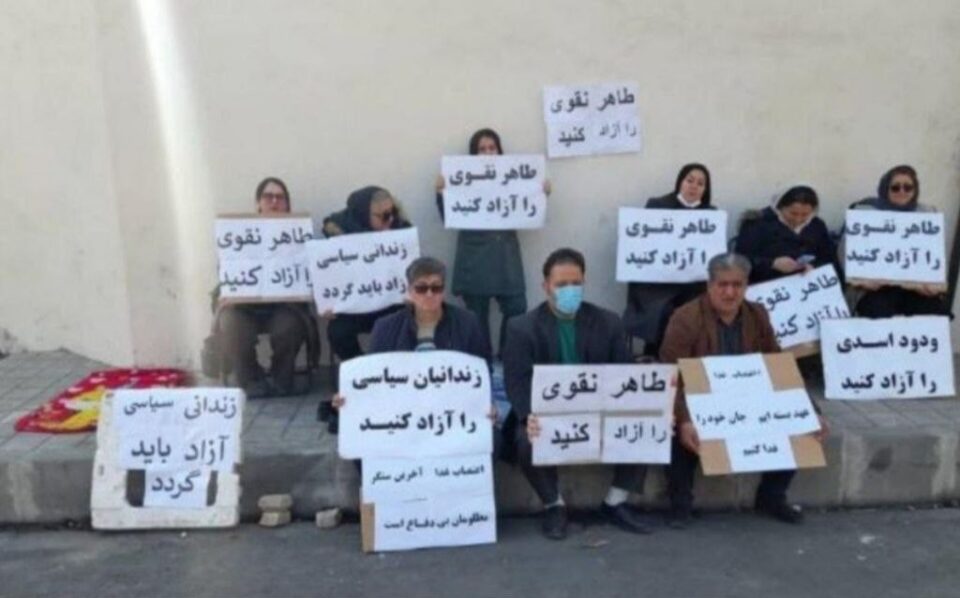 طاهر نقوی
را آزاد کنید
طاهر نقوی
را آزاد کنید
طاهر نقوی
را آزاد کنید
زندانی سیاسی
آزاد باید گردد
طاهر نقوی
را آزاد کنید
طاهر نقوی
را آزاد کنید
طاهر نقوی
را آزاد کنید
ودود اسدی
را آزاد کنید
زندانیان سیاسی
را آزاد کنید
اعتصاب غذا آخرین سنگر
مظلومان بی دفاع است
طاهر نقوی
را آزاد کنید
اعتصاب غذا
عهد بسته ایم جان خود را
فدا کنیم
زندانی سیاسی
آزاد باید
گردد